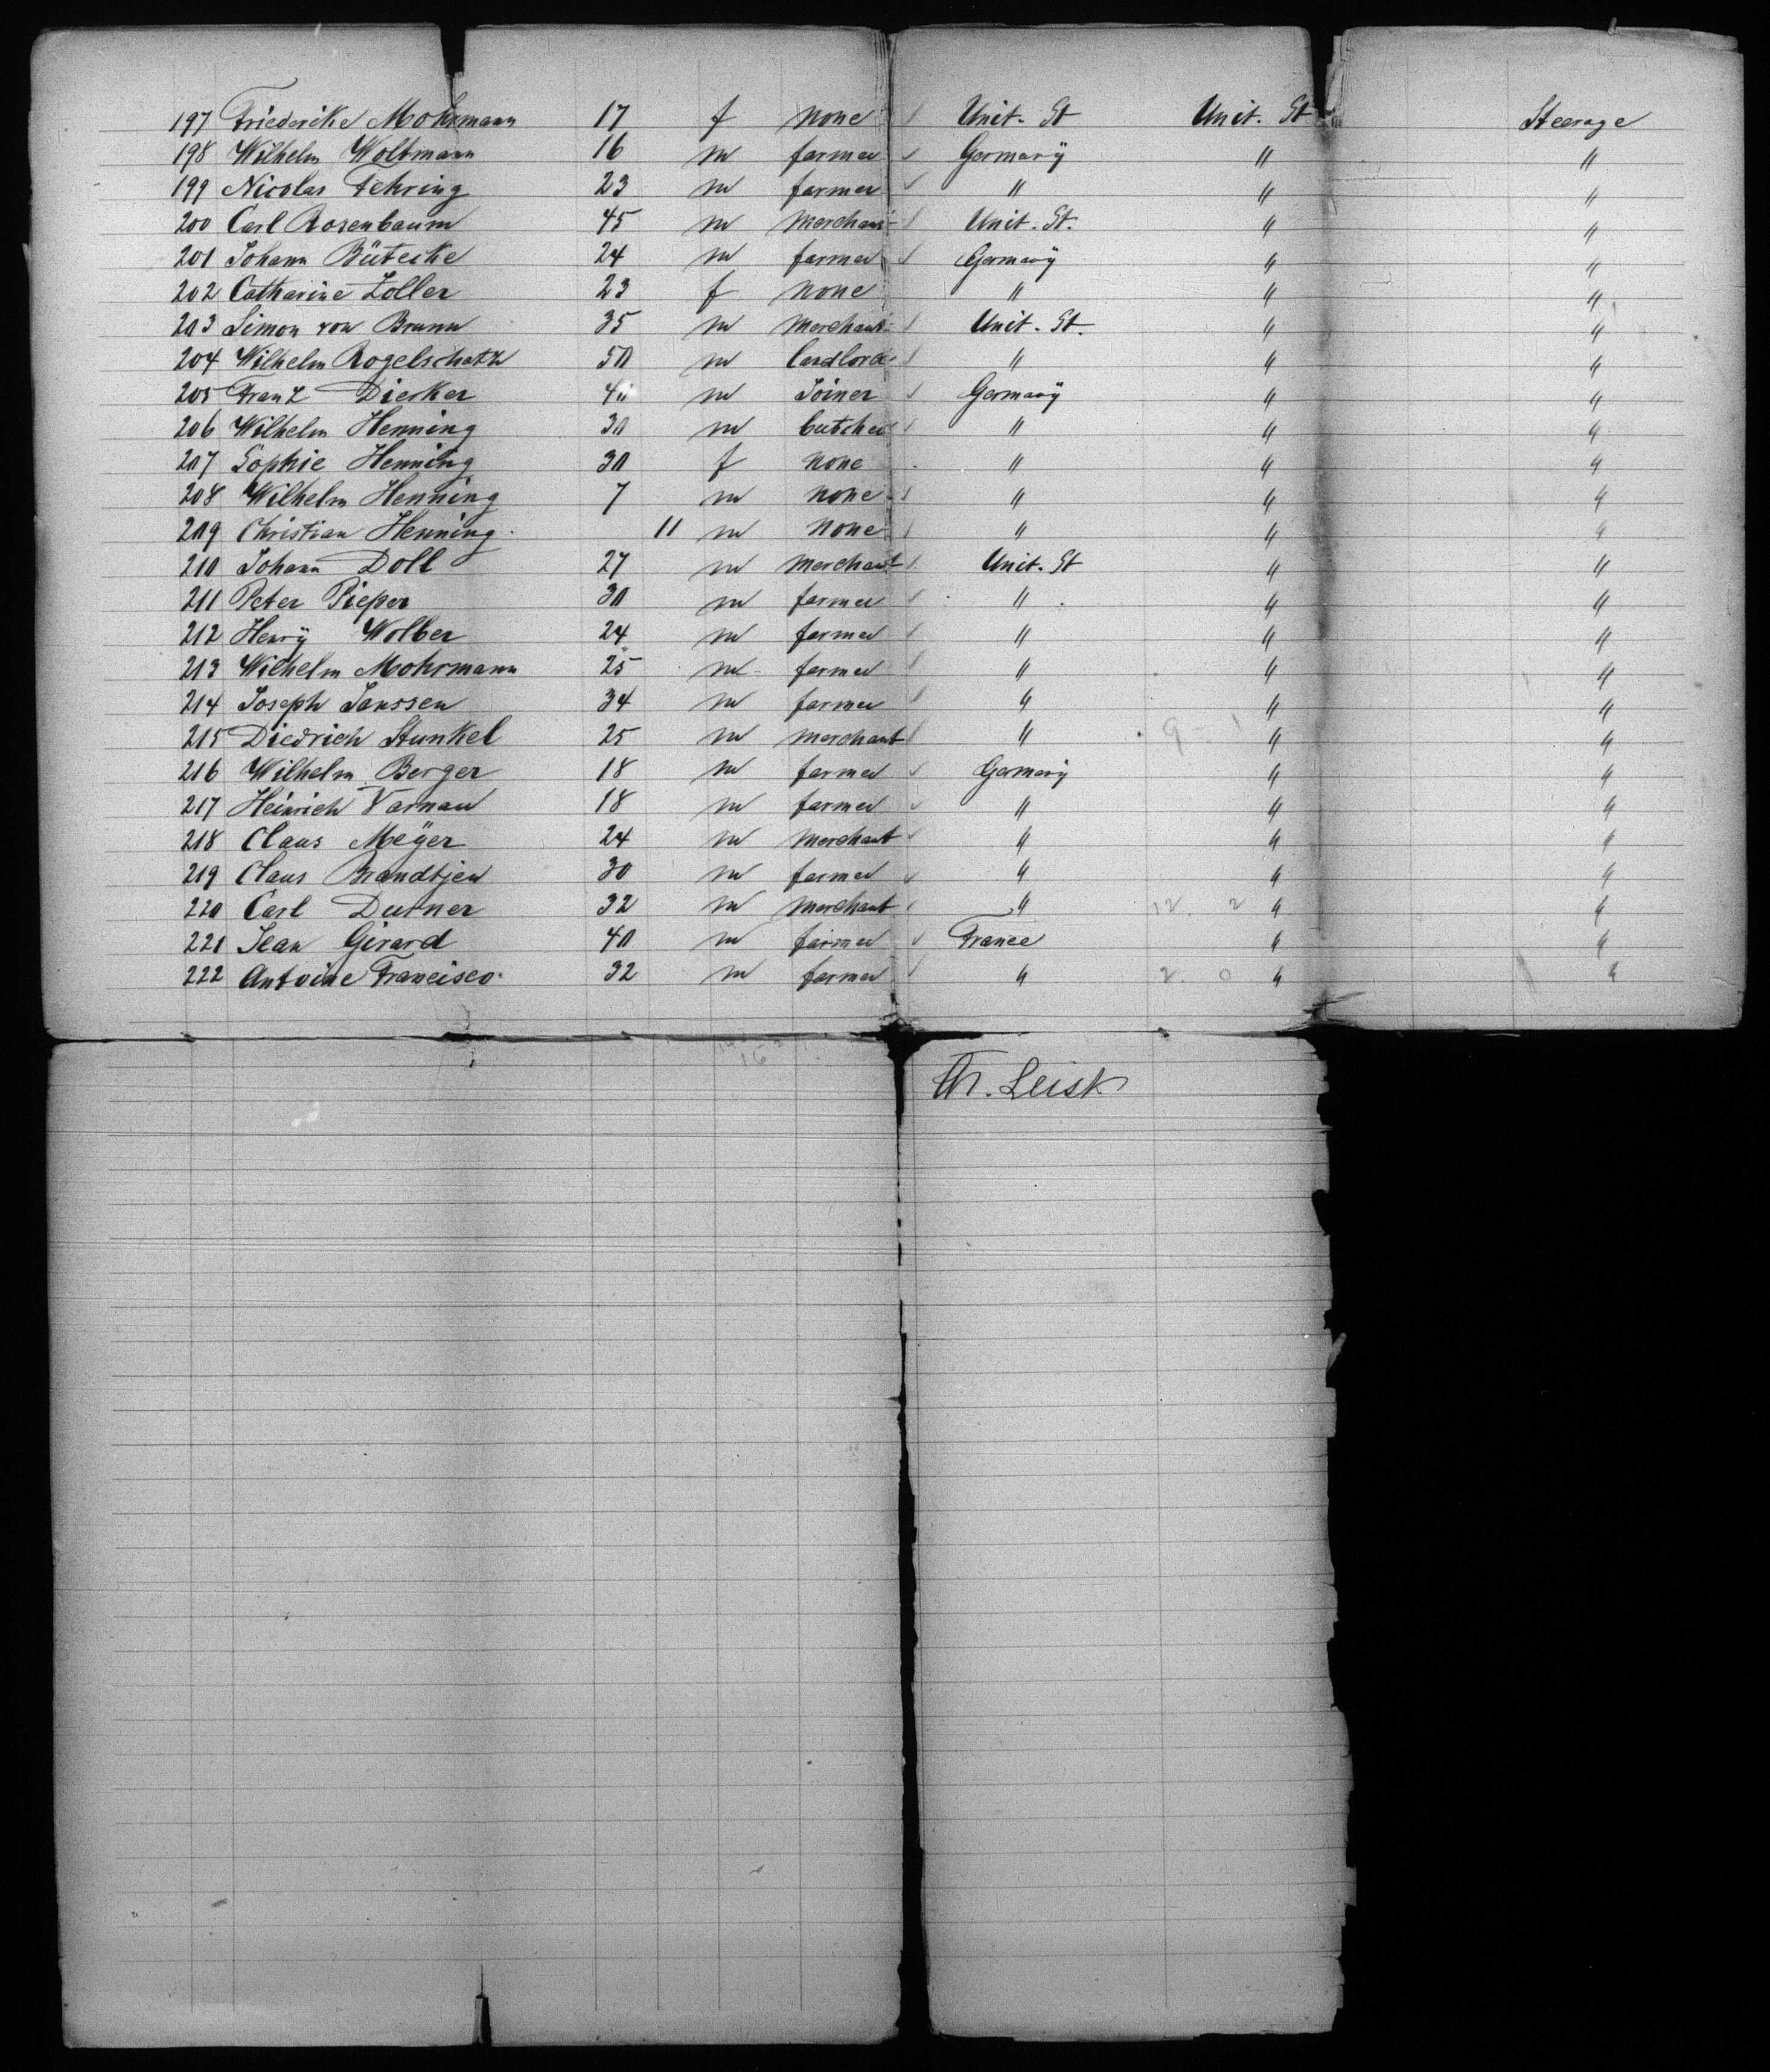 197 Friederike Mohrmann 17 f none Unit. St Unit. St Steerage
198 Wilhelm Woltmann 16 m farmer Germany " "
199 Nicolas Fehring 23 m farmer " " "
200 Carl Rosenbaum 45 m merchant Unit. St. " "
201 Johann Bütecke 24 m farmer Germany " "
202 Catharine Zoller 23 f none " " "
203 Simon von Brunn 35 m merchant Unit. St. " "
204 Wilhelm Rogelschatz 50 m landlord " " "
205 Franz Dierker 40 m Joiner Germany " "
206 Wilhelm Henning 30 m butcher " " "
207 Sophie Henning 30 f none " " "
208 Wilhelm Henning 7 m none " " "
209 Christian Henning 11 m none " " "
210 Johann Doll 27 m merchant Unit. St " "
211 Peter Pieper 30 m farmer " " "
212 Henry Wolber 24 m farmer " " "
213 Wilhelm Mohrmann 25 m farmer " " "
214 Joseph Janssen 34 m farmer " " "
215 Diedrich Stunkel 25 m merchant " " "
216 Wilhelm Berger 18 m farmer Germany " "
217 Heinrich Varnau 18 m farmer " " "
218 Claus Meÿer 24 m merchant " " "
219 Claus Brandtjen 30 m farmer " " "
220 Carl Durner 32 m merchant " 12. 2 " "
221 Jean Girard 40 m farmer France " "
222 Antoine Francisco 32 m farmer " 2. 0 " "
16
Th. Leist